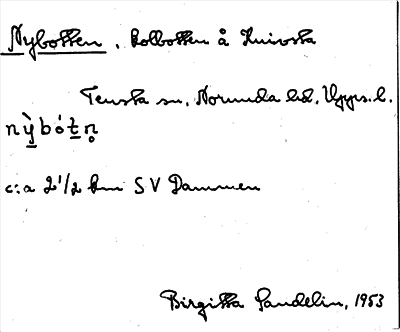 Nybotten, kolbotten å Knivsta
Tensta sn, Norunda hd, Upps. l.
nỳbót̲n̥
c:a 2 1/2 km SV Dammen
Birgitta Sandelin, 1953